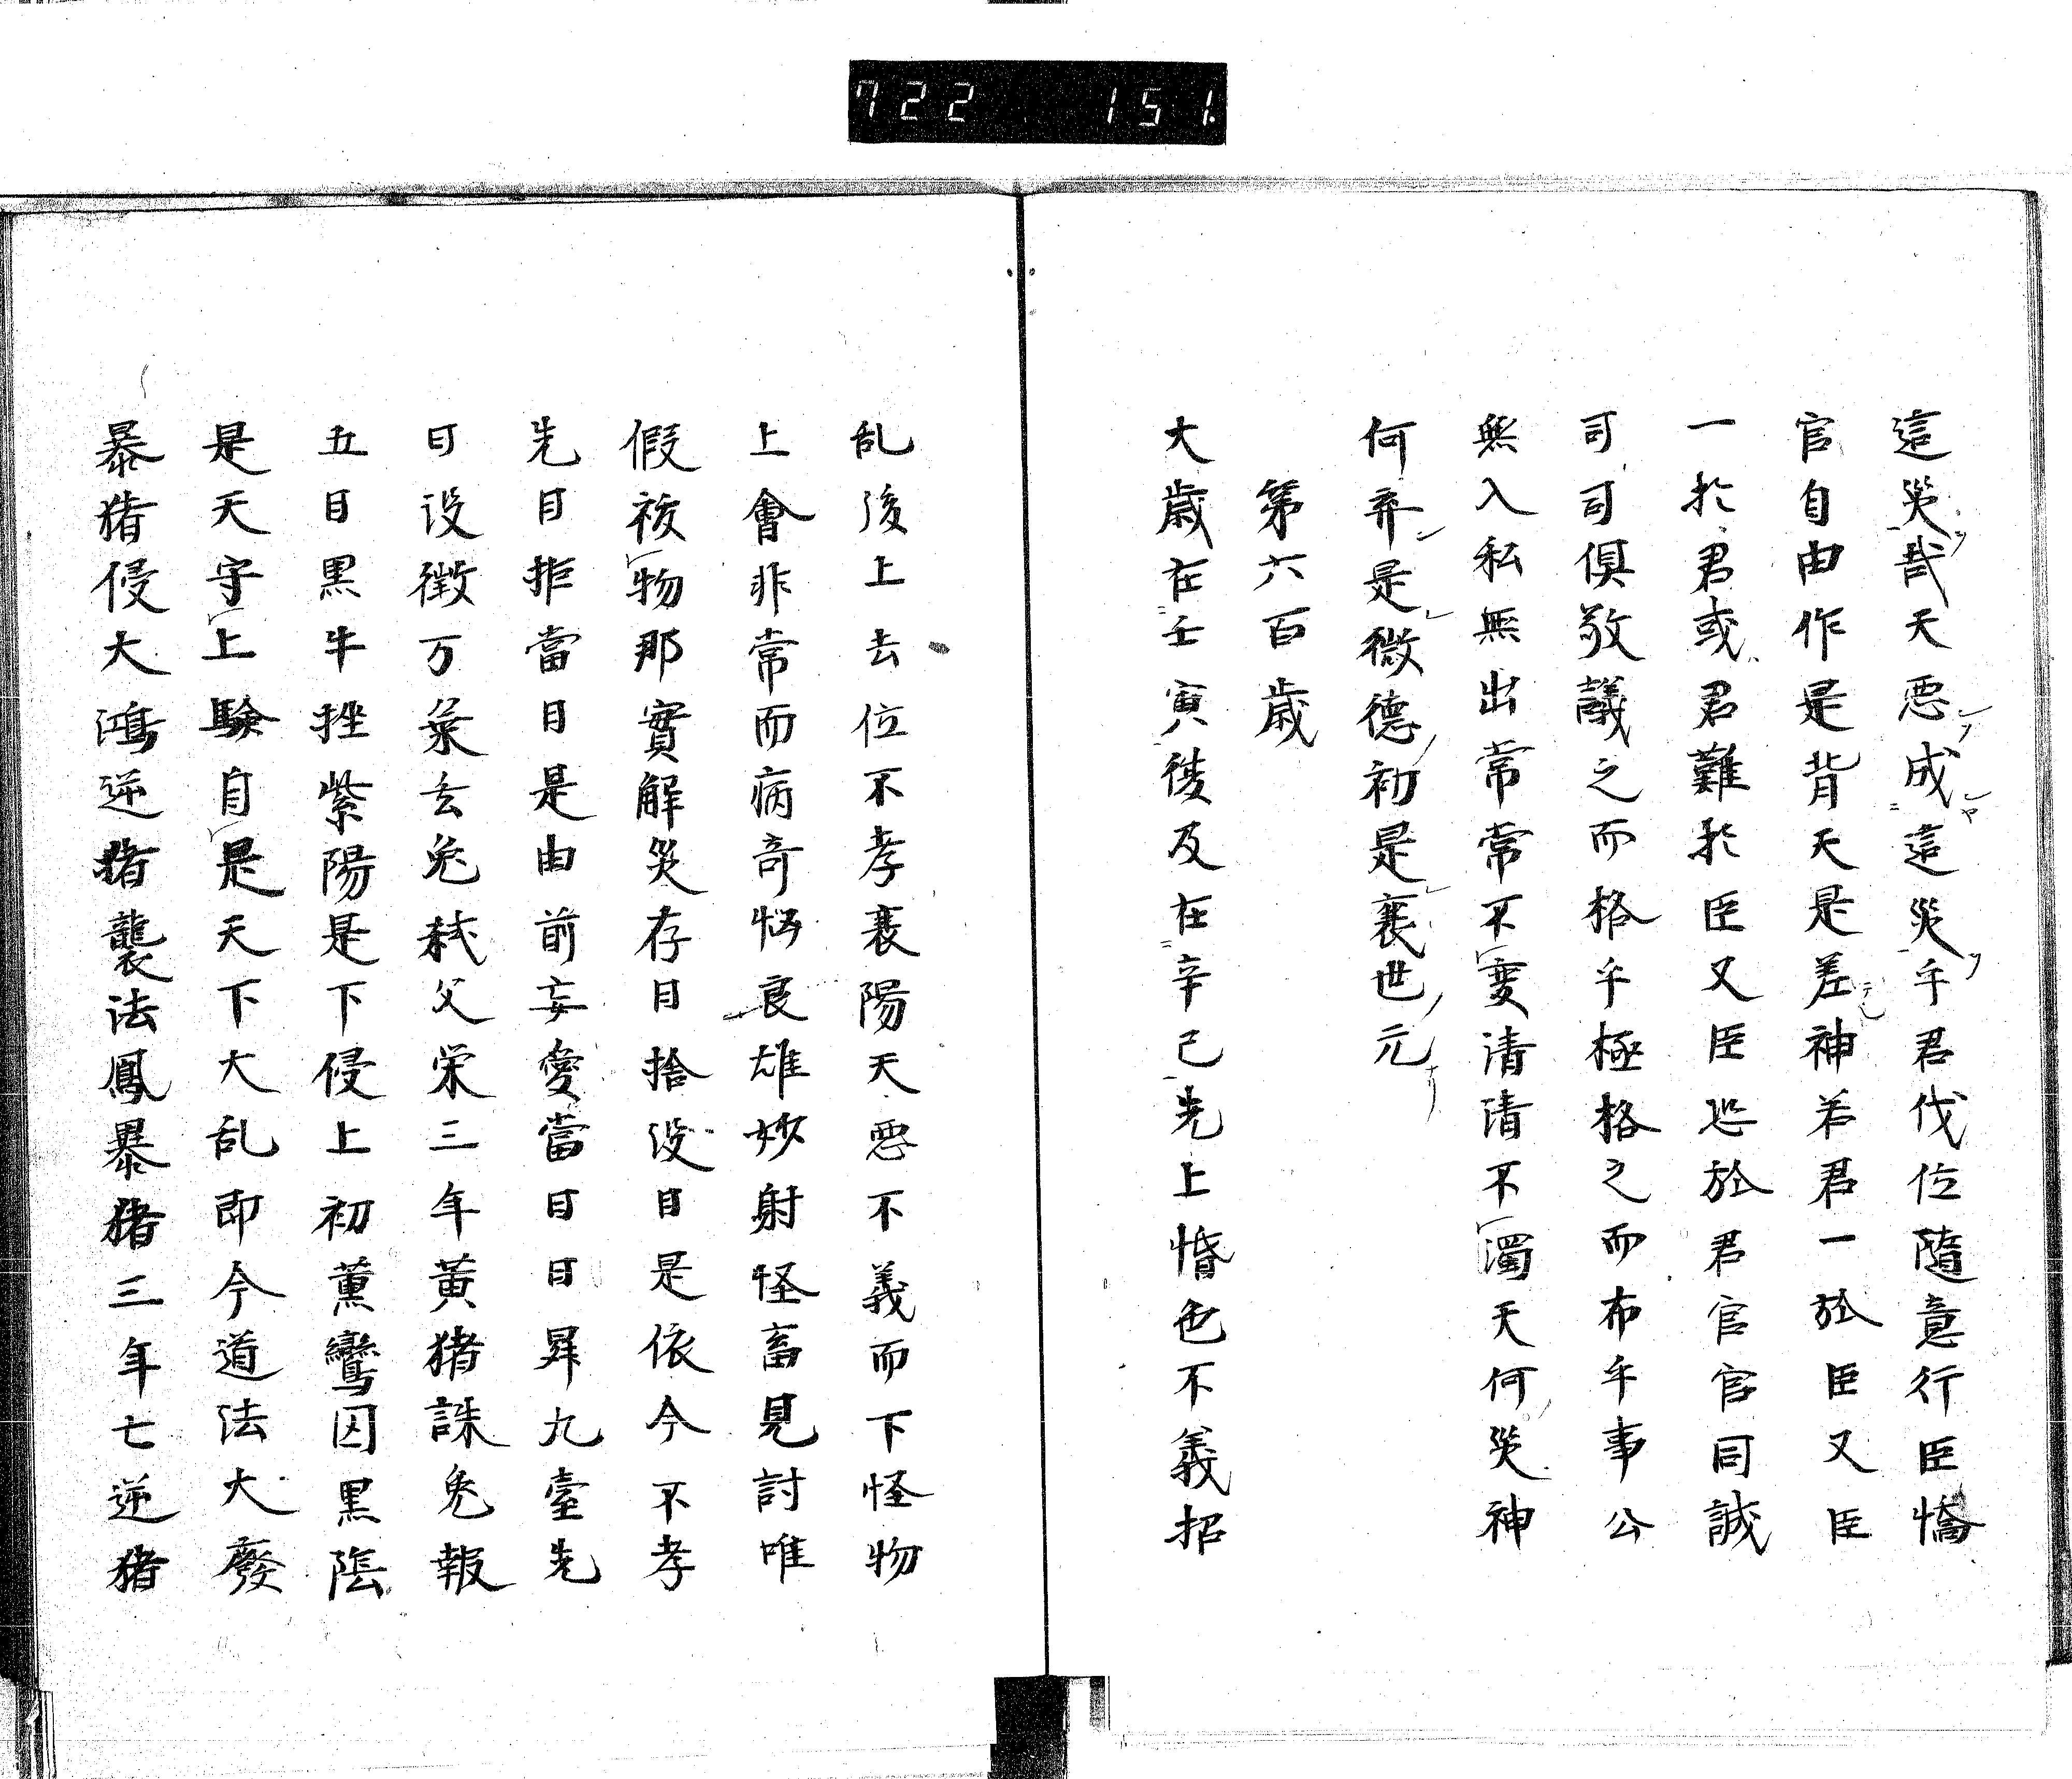 722 151
這災哉天悪成這災乎君伐位隨意行臣憍
官自由作是背天是差神若君一於臣又臣
一於君或君難於臣又臣恐於君官官同誠
司司倶敬議之而格乎極格之而布乎事公
無入私無出常常不変清清不濁天何災神
何弃是微德初是衰世元
第六百歳
大歳在壬寅後及在辛己先上惛色不義招
乱後上去位不孝衰陽天悪不義而下怪物
上會非常而病奇悩良雄妙射怪畜見討唯
假祓物那實解災存日捨没日是依今不孝
先日拒當日是由前妄愛當日日昇九臺先
日没徴万葉去兔弑父栄三年黄猪誅兔報
五日黒牛挫紫陽是下侵上初薫鸞囚黒陰
是天守上驗自是天下大乱即今道法大廢
暴猪侵大鴻逆猪襲法鳳暴猪三年七逆猪